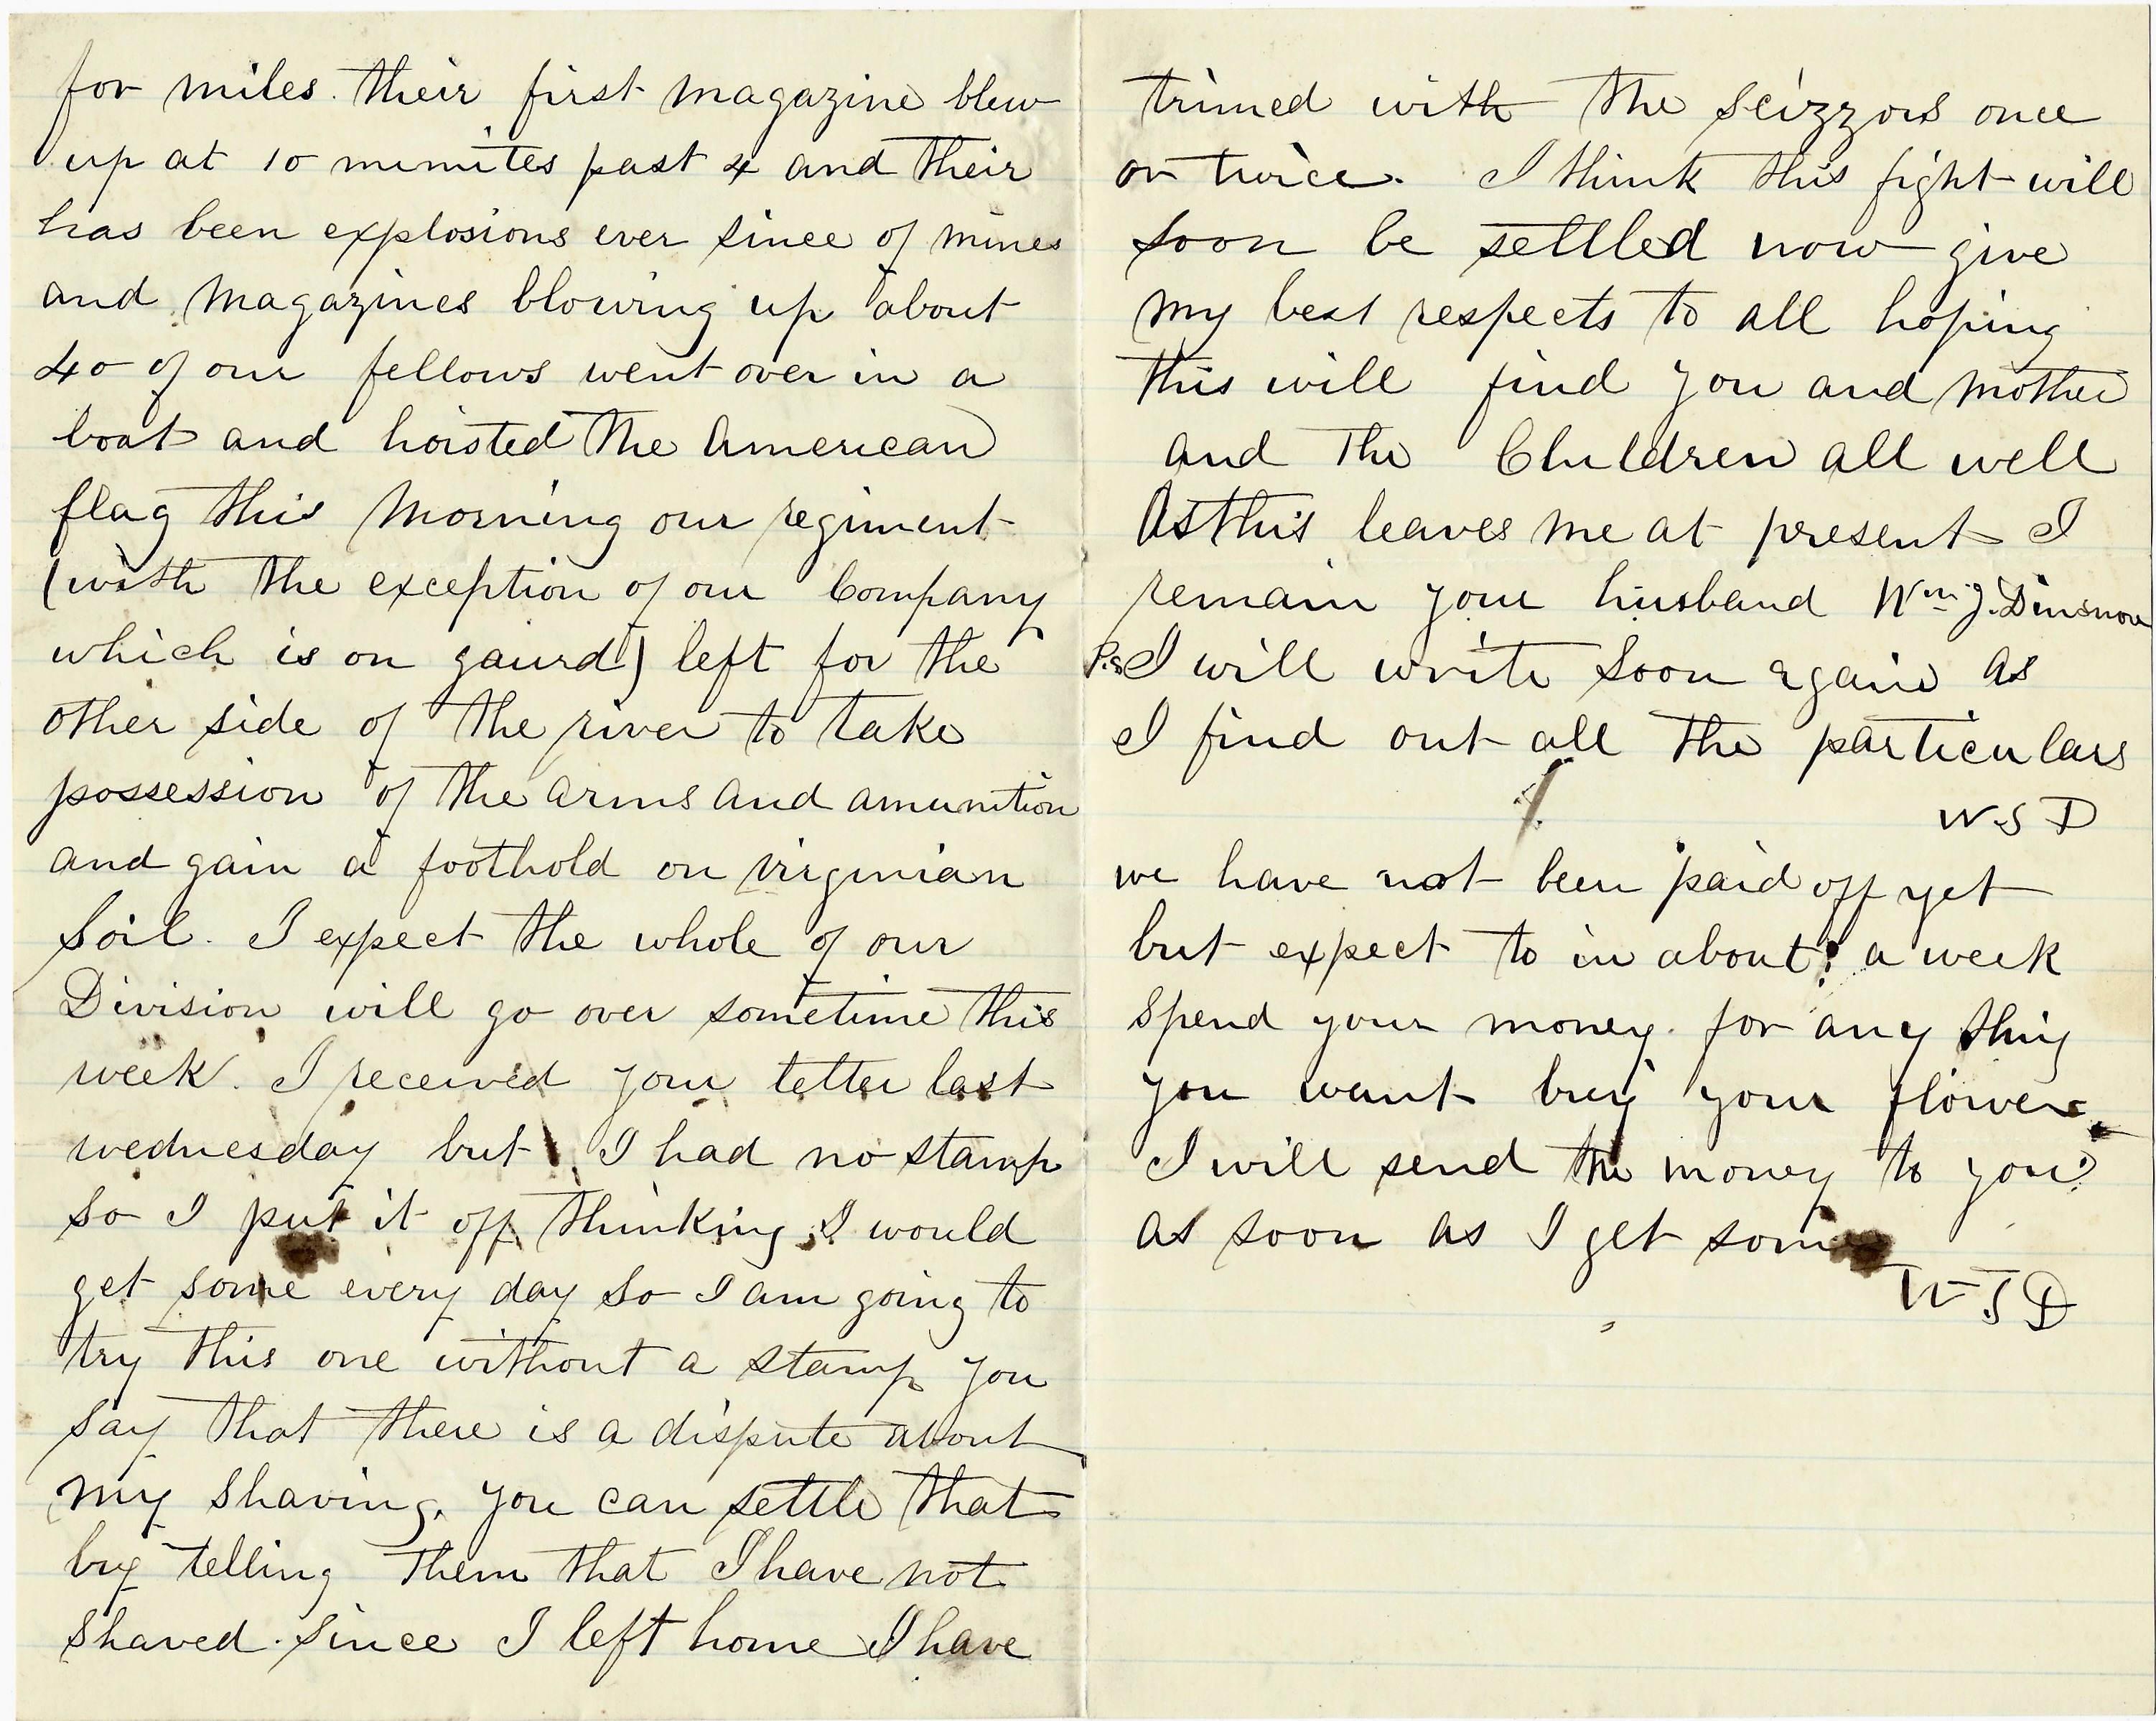 for miles. their first magazine blew
up at 10 minuites past 4 and their
has been explosions ever since of mines
and magazines blowing up about
40 of our fellows went over in a
boat and hoisted the American
flag this morning our regiment
(with the exception of our Company
which is on gaurd) left for the
other side of the river to take
possession of the arms and amunition
and gain a foothold on virginian
soil. I expect the whole of our
Division will go over sometime this
week. I received your letter last
wednesday but I had no stamp
so I put it off thinking I would
get some every day so I am going to
try this one without a stamp you
say that there is a dispute about
my shaving. you can settle that
by telling them that I have not
shaved since I left home I have
trimed with the scizzors once
or twice. I think this fight will
soon be settled now give
my best respects to all hoping
this will find you and mother
and the Children all well
As this leaves me at present I
remain your husband Wm J. Dinsmore
P.s I will write soon again as
I find out all the particulars
W S D
we have not been paid off yet
but expect to in about a week
spend your money for any thing
you want buy your flower
I will send the money to you
as soon as I get some
W J D